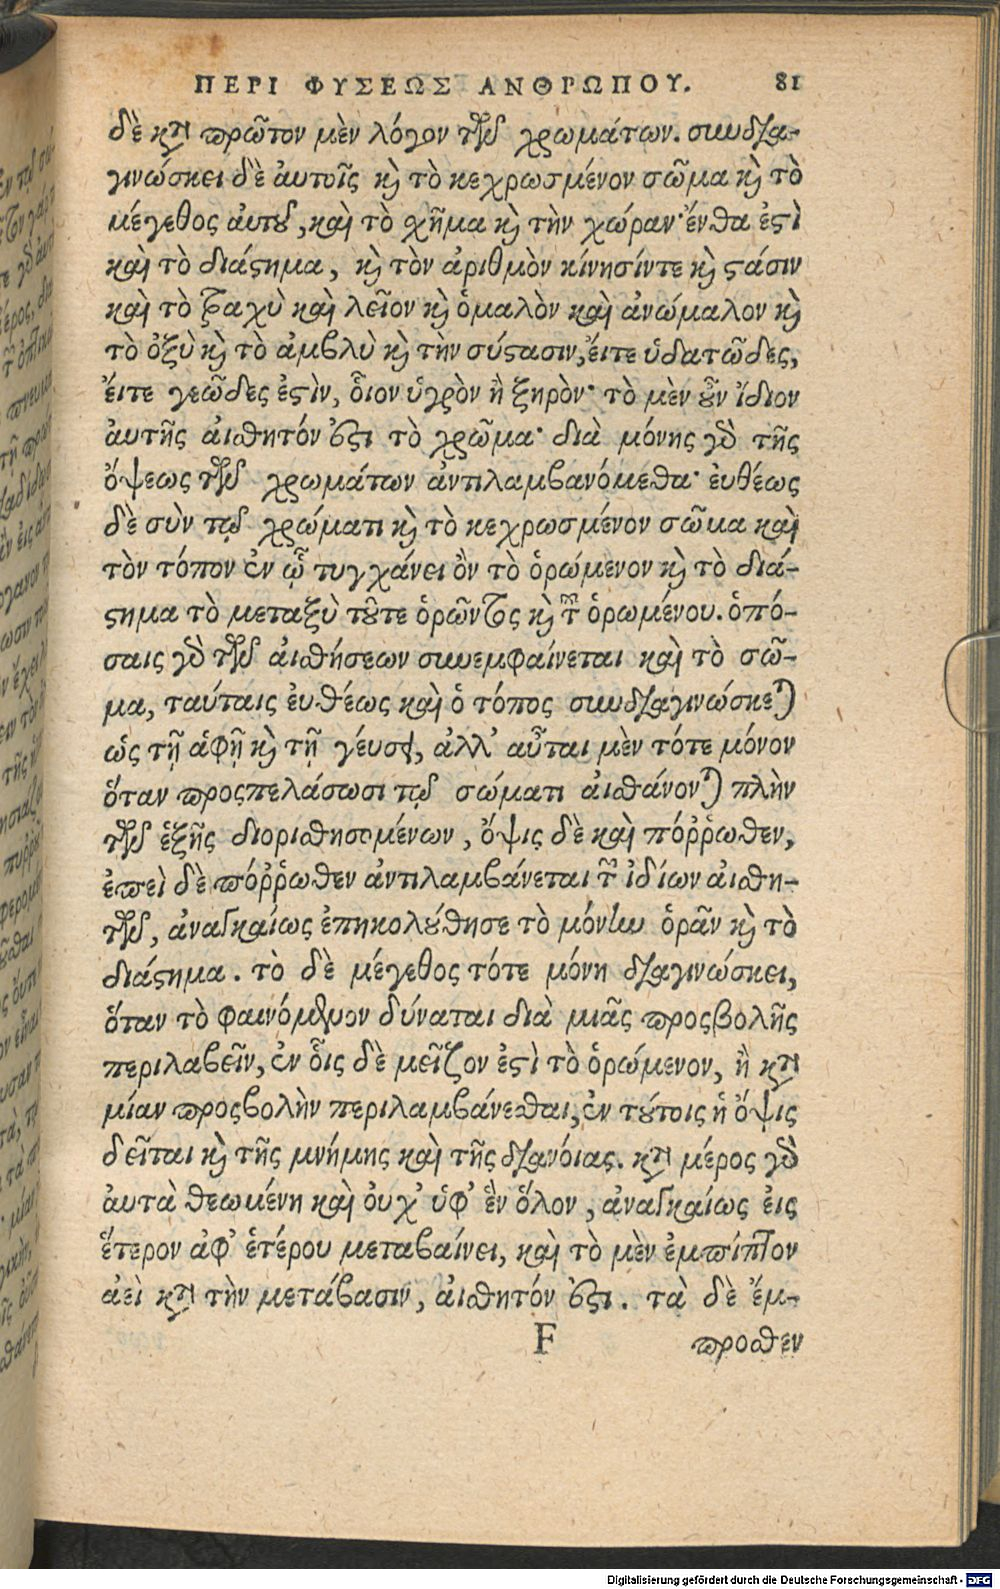 ΠΕΡΙ ΦΥΣΕΩΣ ΑΝΘΡΩΠΟΥ. 81
δὲ κτ̀ πρῶτον μὲν λόγον τῶν χρωμάτων. συνδια-
γινώσκει δὲ ἀυτοῖς κ̀ τὸ κεχρωσμένον σῶμα κ̀ τὸ
μέγεθος ἀυτȣ͂, καὶ τὸ χῆμα κ̀ τὴν χώραν· ἔνθα ἐςὶ
καὶ τὸ διάςημα, κ̀ τὸν ἀριθμὸν κίνησίντε κ̀ ςάσιν
καὶ τὸ τραχὺ καὶ λεῖον κ̀ ὁμαλὸν καὶ ἀνώμαλον κ̀
τὸ ὀξὺ κ̀ τὸ ἀμβλὺ κ̀ τὴν σύςασιν, ἔιτε ὑδατῶδες,
ἔιτε γεῶδες ἐςὶν, ὅιον ὑγρὸν ἢ ξηρὸν· τὸ μὲν ȣ͂ν ἴδιον
ἀυτῆς αἰσθητόν ἐςι τὸ χρῶμα· διὰ μόνης γὸ τῆς
ὄψεως τῶν χρωμάτων ἀντιλαμβανόμεθα· ἐυθέως
δὲ σὺν τῷ χρώματι κ̀ τὸ κεχρωσμένον σῶμα καὶ
τὸν τόπον ἐν ᾧ τυγχάνει ὂν τὸ ὁρώμενον κ̀ τὸ διά-
ςημα τὸ μεταξὺ τȣ͂τε ὁρῶντος κ̀ τ͂ ὁρωμένου. ὁπό-
σαις γὸ τῶν αἰσθήσεων συνεμφαίνεται καὶ τὸ σῶ-
μα, ταύταις ἐυθέως καὶ ὁ τόπος συνδιαγινώσκε)
ὡς τῇ ἁφῇ κ̀ τῇ γέυσει, ἀλλ' αὗται μὲν τότε μόνον
ὅταν προσπελάσωσι τῷ σώματι αἰσθάνον) πλὴν
τῶν ἑξῆς διορισθησομένων, ὄψις δὲ καὶ πόῤῥωθεν,
ἐπεὶ δὲ πόῤῥωθεν ἀντιλαμβάνεται τ͂ ἰδίων αἰσθη-
τῶν, ἀναγκαίως ἐπηκολȣ́θησε τὸ μόνην ὁρᾶν κ̀ τὸ
διάςημα. τὸ δὲ μέγεθος τότε μόνη διαγινώσκει,
ὅταν τὸ φαινόμενον δύναται διὰ μιᾶς προσβολῆς
περιλαβεῖν, ἐν ὅις δὲ μεῖζον ἐςὶ τὸ ὁρώμενον, ἢ κτ̀
μίαν προσβολὴν περιλαμβάνεσθαι, ἐν τȣ́τοις ἡ ὄψις
δεῖται κ̀ τῆς μνήμης καὶ τῆς διανόιας. κτ̀ μέρος γὸ
ἀυτὰ θεωμένη καὶ ὀυχ' ὑφ' ἓν ὅλον, ἀναγκαίως ἐις
ἕτερον ἀφ' ἑτέρου μεταβαίνει, καὶ τὸ μὲν ἐμπίπτον
ἀεὶ κτ̀ τὴν μετάβασιν, ἀισθητόν ἐςι. τὰ δὲ ἔμ-
F προσθεν
Digitalisierung gefördert durch die Deutsche Forschungsgemeinschaft - DFG